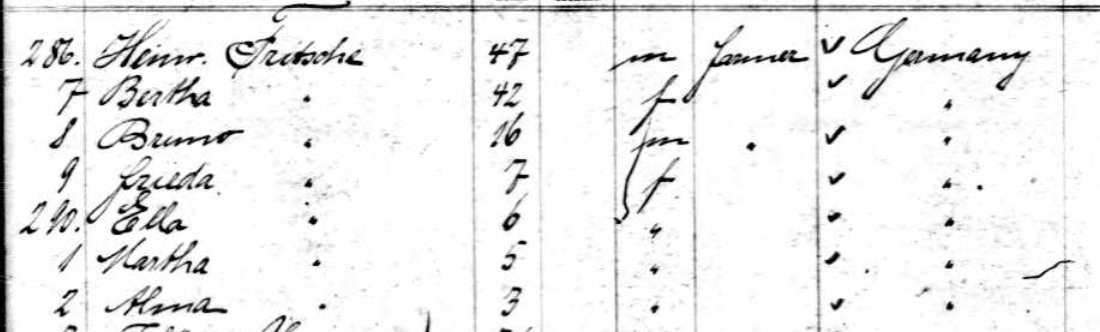 286. Heinr. Fritsche 47 m farmer ✓ Germany
7 Bertha " 42 f ✓ "
8 Bruno " 16 m " ✓ "
9 Frieda " 7 f ✓ "
290. Ella " 6 " ✓ "
1 Martha " 5 " ✓ "
2 Alma " 3 " ✓ "